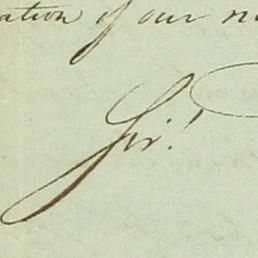 ation of our n
Sir!